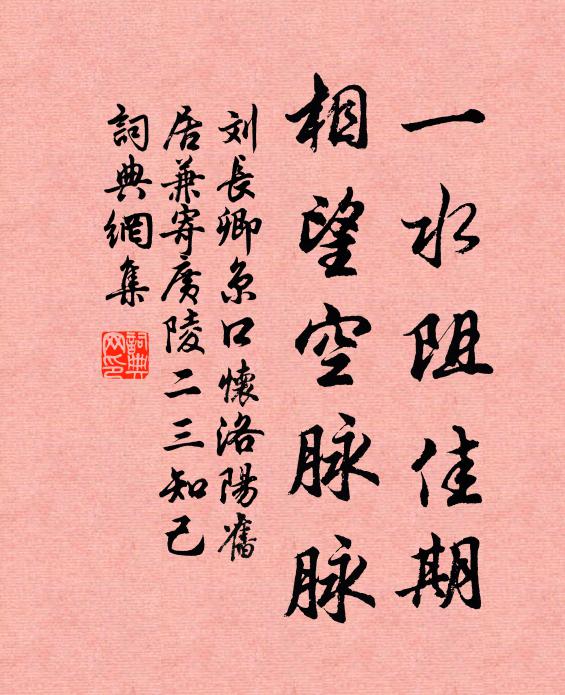 一水阻佳期
相望空脉脉
刘長卿京口懷洛陽舊
居兼寄廣陵二三知己
詞典網集
詞典网印